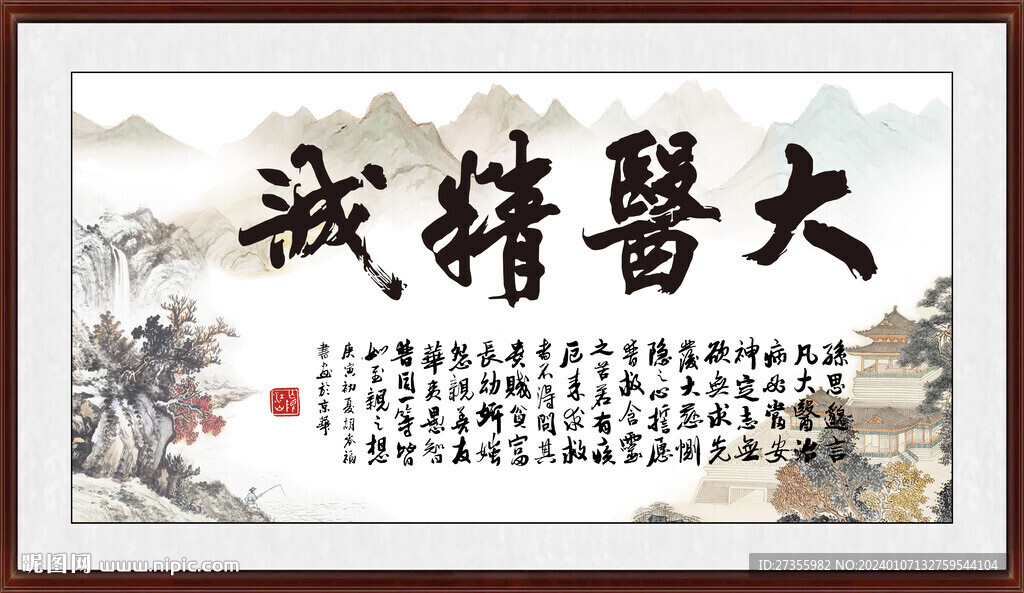 大醫精誠
孫思邈言
凡大醫治
病必當安
神定志無
欲無求先
發大慈惻
隱之心誓愿
普救含靈
之苦若有疾
厄来求救
者不得問其
貴賤貧富
長幼妍媸
怨親善友
華夷愚智
普同一等皆
如至親之想
庚寅初夏胡福
書於京華
昵图网 www.nipic.com
ID:27355982 NO:20240107132759544104